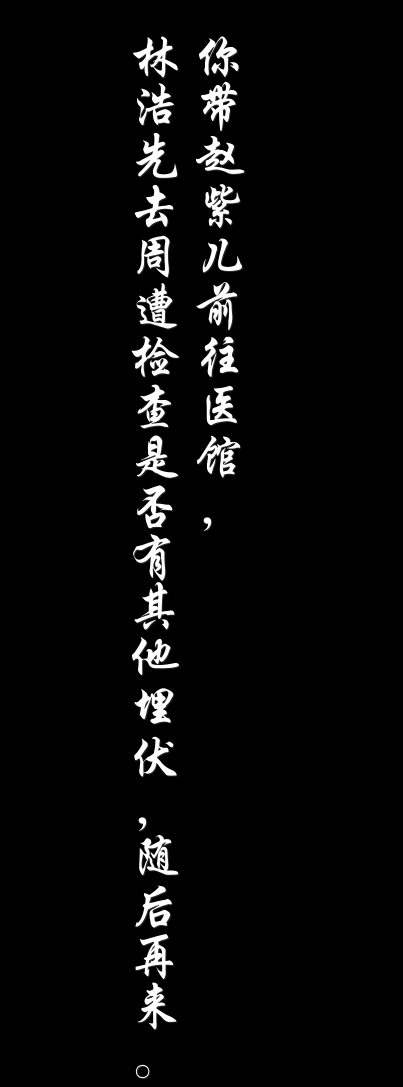 你带赵紫儿前往医馆，
林浩先去周遭检查是否有其他埋伏，随后再来。